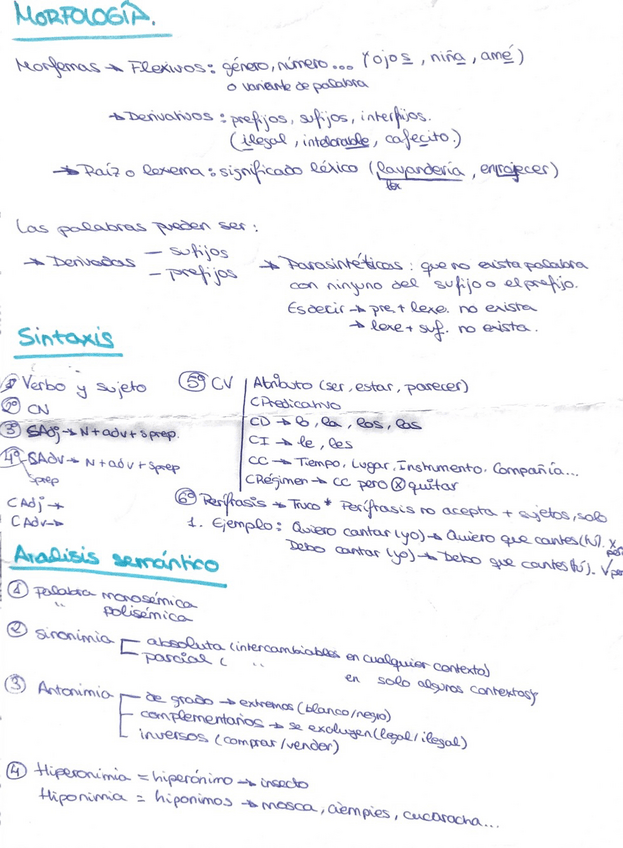 MORFOLOGÍA.
Morfemas → Flexivos: género, número... (ojos, niña, amé)
o variante de palabra
→ Derivativos: prefijos, sufijos, interfijos.
(ilegal, intolerable, cafecito.)
→ Raíz o lexema: significado léxico (lavandería, enrojecer)
lex
Las palabras pueden ser:
→ Derivadas – sufijos
– prefijos
→ Parasintéticas: que no exista palabra
con ninguno del sufijo o el prefijo.
Es decir → pre + lexe. no exista
→ lexe + suf. no exista.
Sintaxis
1º Verbo y sujeto
2º CN
3º SAdj → N + adv + Sprep.
4º SAdv → N + adv + Sprep
Sprep
CAdj →
CAdv →
5º CV
Atributo (ser, estar, parecer)
CPredicativo
CD → lo, la, los, las
CI → le, les
CC → Tiempo, Lugar, Instrumento, Compañía...
CRégimen → CC pero X quitar
6º Perífrasis → Truco * Perífrasis no acepta + sujetos, solo
1. Ejemplo: Quiero cantar (yo) → Quiero que cantes (tú). X
Debo cantar (yo) → Debo que cantes (tú). √
Analisis semántico
1 Palabra monosémica
" polisémica
2 sinonimia absoluta (intercambiables en cualquier contexto)
parcial ( " en solo algunos contextos)
3 Antonimia de grado → extremos (blanco/negro)
complementarios → se excluyen (legal/ilegal)
inversos (comprar/vender)
4 Hiperonimia = hiperónimo → insecto
Hiponimia = hiponimos → mosca, ciempies, cucaracha...